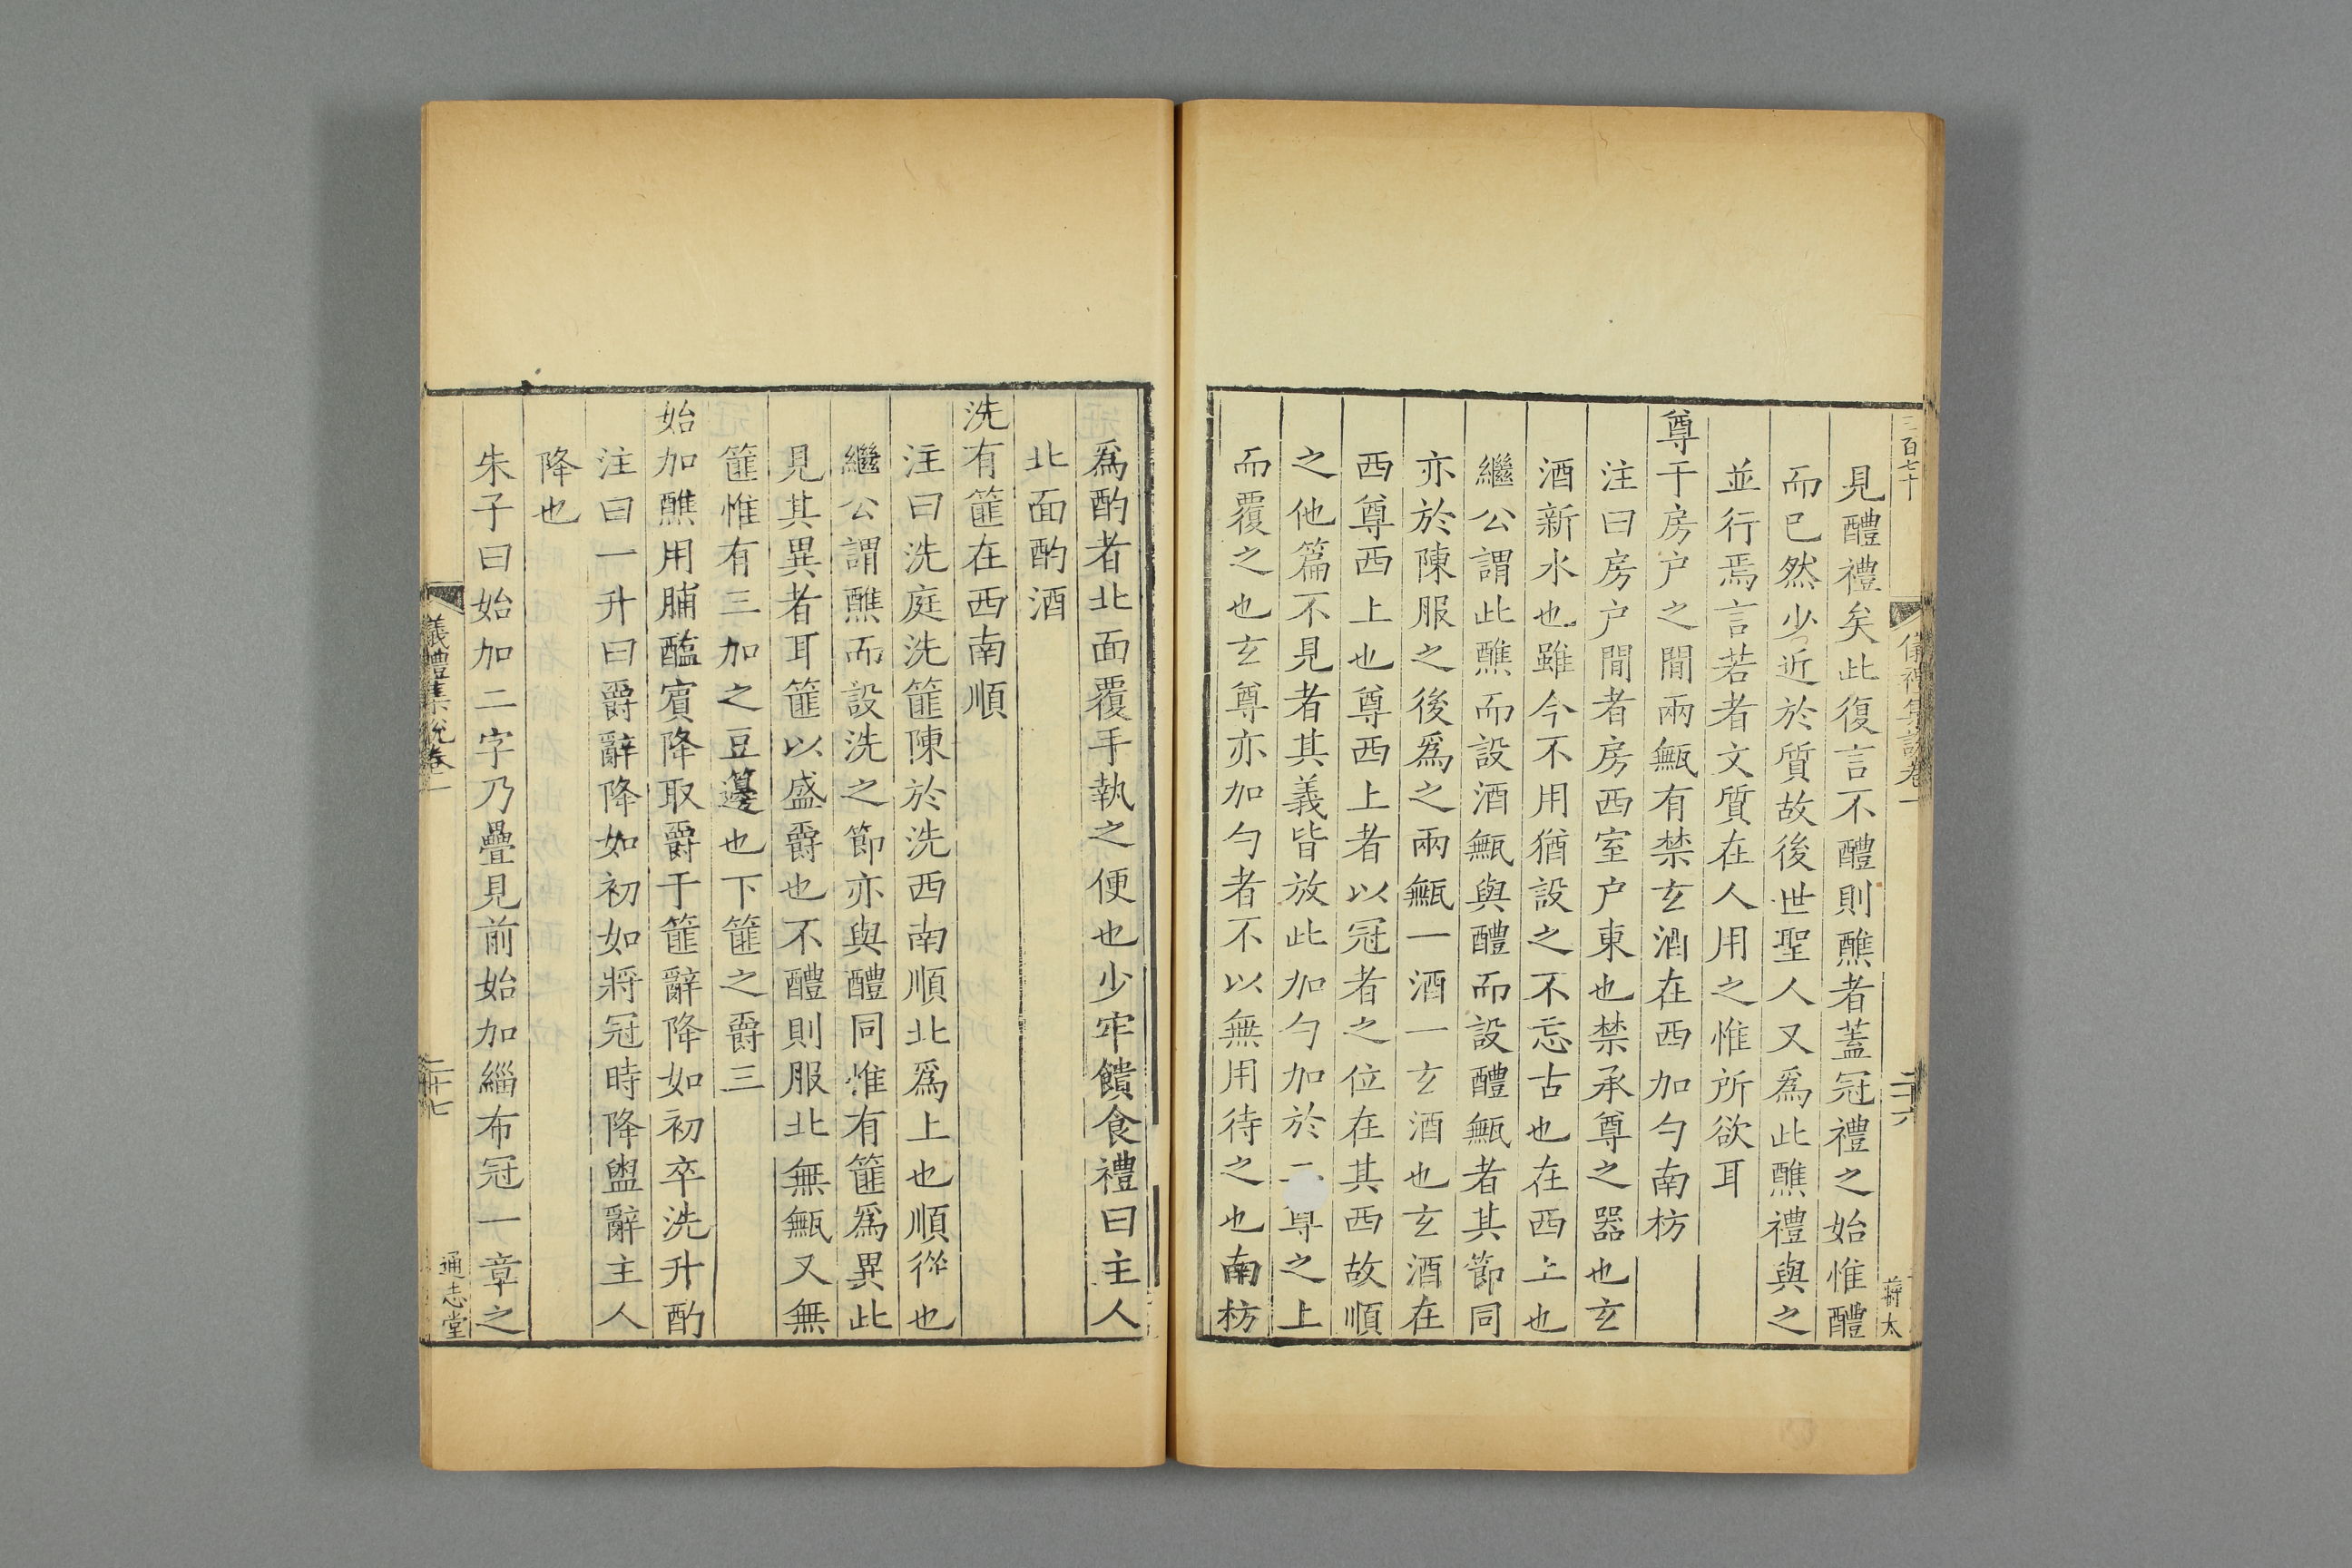 三百七十
儀禮集說卷一
二十六
蔣太
見醴禮矣此復言不醴則醮者蓋冠禮之始惟醴
而已然少近於質故後世聖人又爲此醮禮與之
並行焉言若者文質在人用之惟所欲耳
尊于房户之閒兩甒有禁玄酒在西加勺南枋
注曰房户閒者房西室户東也禁承尊之器也玄
酒新水也雖今不用猶設之不忘古也在西上也
繼公謂此醮而設酒甒與醴而設醴甒者其節同
亦於陳服之後爲之兩甒一酒一玄酒也玄酒在
西尊西上也尊西上者以冠者之位在其西故順
之他篇不見者其義皆放此加勺加於二尊之上
而覆之也玄尊亦加勺者不以無用待之也南枋
爲酌者北面覆手執之便也少牢饋食禮曰主人
北面酌酒
洗有篚在西南順
注曰洗庭洗篚陳於洗西南順北爲上也順從也
繼公謂醮而設洗之節亦與醴同惟有篚爲異此
見其異者耳篚以盛爵也不醴則服北無甒又無
篚惟有三加之豆籩也下篚之爵三
始加醮用脯醢賓降取爵于篚辭降如初卒洗升酌
注曰一升曰爵辭降如初如將冠時降盥辭主人
降也
朱子曰始加二字乃疊見前始加緇布冠一章之
儀禮集說卷一
二十七
通志堂